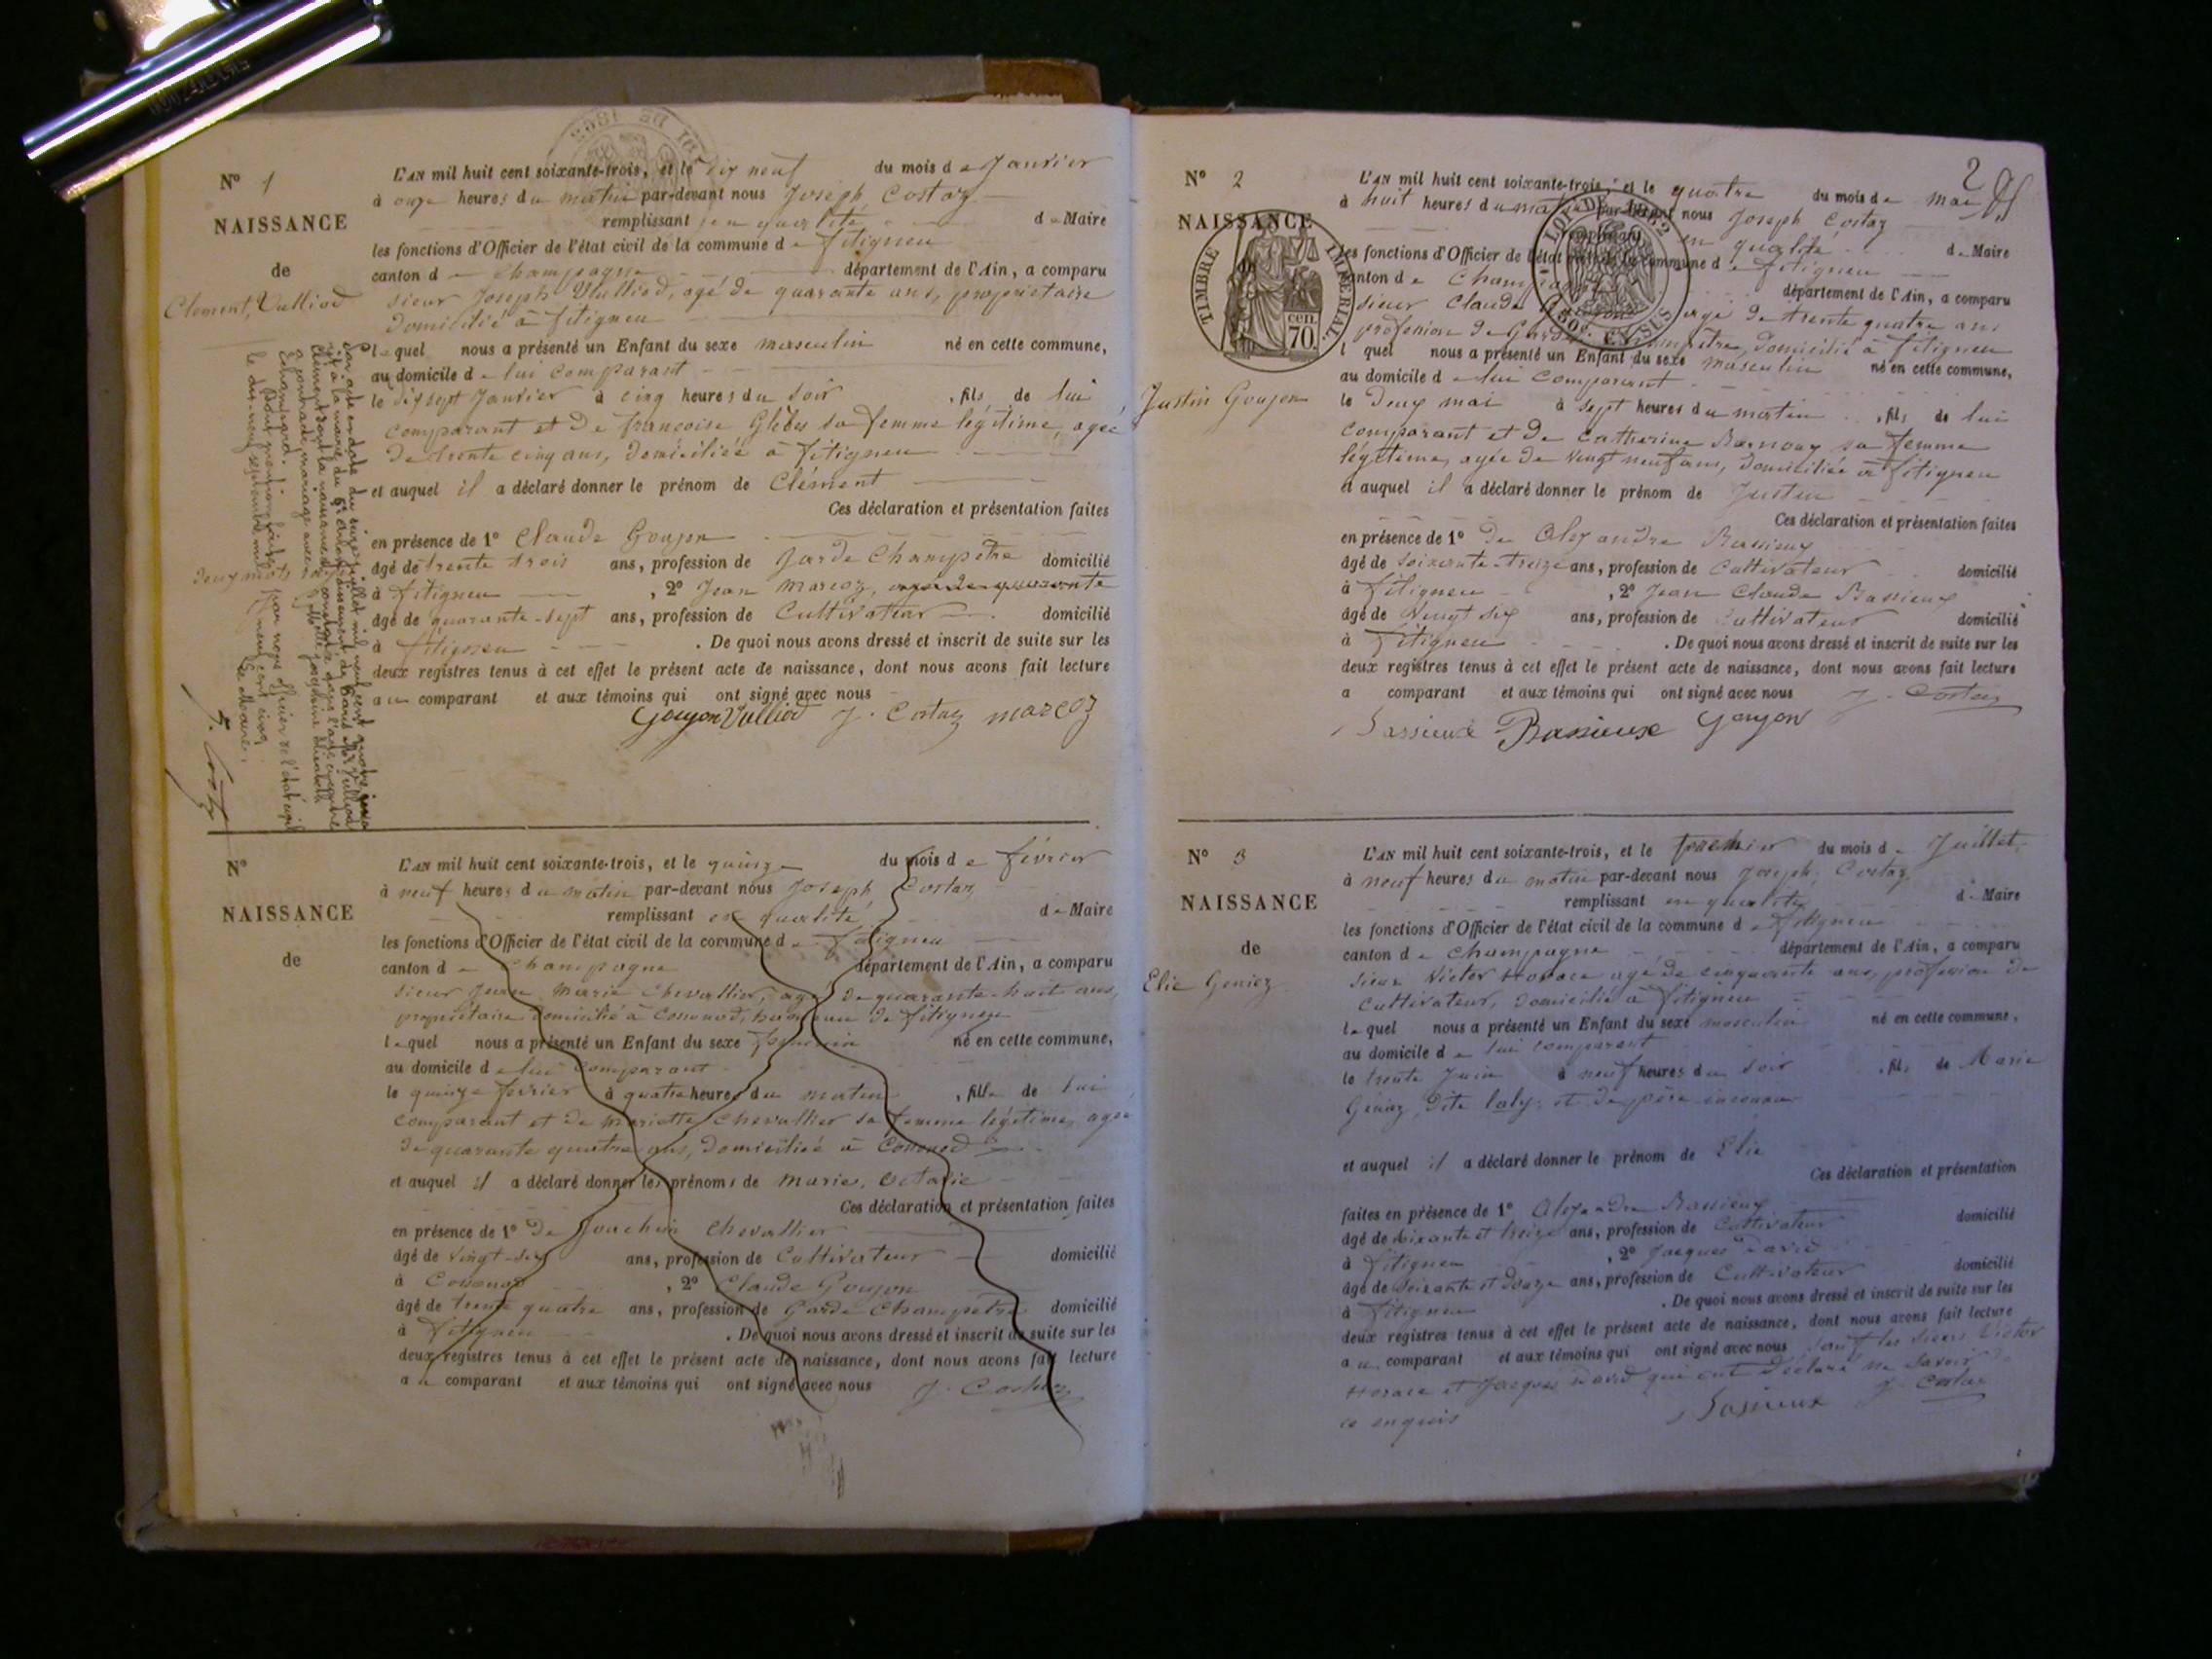 N° 1
NAISSANCE
de
Clément, Vulliod
L'AN mil huit cent soixante-trois, et le dix neuf du mois de Janvier
à onze heures du matin par-devant nous Joseph Costaz
remplissant en qualité de Maire
les fonctions d'Officier de l'état civil de la commune de fitigneu
canton de Champagne département de l'Ain, a comparu
sieur Joseph Vulliod, agé de quarante ans, propriétaire
domicilié à fitigneu
lequel nous a présenté un Enfant du sexe masculin né en cette commune,
au domicile de lui comparant
le dix sept Janvier à cinq heures du soir, fils de lui
comparant et de françoise sa femme légitime, agée
de trente cinq ans, domiciliée à fitigneu
et auquel il a déclaré donner le prénom de Clément
Ces déclaration et présentation faites
en présence de 1° Claude Goujon
âgé de trente trois ans, profession de garde Champêtre domicilié
à fitigneu, 2° Jean Marcoz, agé de quarante
âgé de quarante-sept ans, profession de Cultivateur domicilié
à fitigneu. De quoi nous avons dressé et inscrit de suite sur les
deux registres tenus à cet effet le présent acte de naissance, dont nous avons fait lecture
au comparant et aux témoins qui ont signé avec nous
Goujon Vulliod J. Costaz Marcoz
deux mots
le dix-neuf septembre mil neuf cent cinq
Le Maire,
J. Costaz
N°
NAISSANCE
de
L'AN mil huit cent soixante-trois, et le quinze du mois de février
à neuf heures du matin par-devant nous Joseph Costaz
remplissant en qualité de Maire
les fonctions d'Officier de l'état civil de la commune de fitigneu
canton de Champagne département de l'Ain, a comparu
sieur Jean Marie Chevallier, agé de quarante-huit ans,
propriétaire domicilié à Cononod, hameau de fitigneu
lequel nous a présenté un Enfant du sexe féminin né en cette commune,
au domicile de lui comparant
le quinze février à quatre heures du matin, fille de lui
comparant et de Mariette Chevallier sa femme légitime, agée
de quarante quatre ans, domiciliée à Cononod
et auquel il a déclaré donner les prénoms de Marie, Octavie
Ces déclaration et présentation faites
en présence de 1° De Joachim Chevallier
âgé de vingt-six ans, profession de Cultivateur domicilié
à Cononod, 2° Claude Goujon
âgé de trente quatre ans, profession de Garde Champêtre domicilié
à fitigneu. De quoi nous avons dressé et inscrit de suite sur les
deux registres tenus à cet effet le présent acte de naissance, dont nous avons fait lecture
au comparant et aux témoins qui ont signé avec nous J. Costaz
2
N° 2
NAISSANCE
de
TIMBRE IMPERIAL.
cen. 70.
LOI DE 1862
50c. EN SUS
Justin Goujon
L'AN mil huit cent soixante-trois, et le quatre du mois de mai
à huit heures du matin par-devant nous Joseph Costaz
remplissant en qualité de Maire
les fonctions d'Officier de l'état civil de la commune de fitigneu
canton de Champagne département de l'Ain, a comparu
sieur Claude Goujon agé de trente quatre ans
profession de Garde Champêtre, domicilié à fitigneu
lequel nous a présenté un Enfant du sexe masculin né en cette commune,
au domicile de lui comparant
le deux mai à sept heures du matin, fils de lui
comparant et de Catherine sa femme
légitime, agée de vingt neuf ans, domiciliée à fitigneu
et auquel il a déclaré donner le prénom de Justin
Ces déclaration et présentation faites
en présence de 1° De Alexandre Bassieux
âgé de soixante-treize ans, profession de Cultivateur domicilié
à fitigneu, 2° Jean Claude Bassieux
âgé de vingt six ans, profession de Cultivateur domicilié
à fitigneu. De quoi nous avons dressé et inscrit de suite sur les
deux registres tenus à cet effet le présent acte de naissance, dont nous avons fait lecture
a comparant et aux témoins qui ont signé avec nous J. Costaz
Bassieux Bassieux Goujon
N° 3
NAISSANCE
de
Elie Geniez
L'AN mil huit cent soixante-trois, et le premier du mois de Juillet
à neuf heures du matin par-devant nous Joseph Costaz
remplissant en qualité de Maire
les fonctions d'Officier de l'état civil de la commune de fitigneu
canton de Champagne département de l'Ain, a comparu
sieur Victor Horace agé de cinquante ans, profession de
Cultivateur, domicilié à fitigneu
lequel nous a présenté un Enfant du sexe masculin né en cette commune,
au domicile de lui comparant
le trente Juin à neuf heures du soir, fils de Marie
Géniez, dite Laly, et de père inconnu
et auquel il a déclaré donner le prénom de Elie
Ces déclaration et présentation
faites en présence de 1° Alexandre Bassieux
âgé de soixante et treize ans, profession de Cultivateur domicilié
à fitigneu, 2° Jacques David
âgé de soixante et douze ans, profession de Cultivateur domicilié
à fitigneu. De quoi nous avons dressé et inscrit de suite sur les
deux registres tenus à cet effet le présent acte de naissance, dont nous avons fait lecture
au comparant et aux témoins qui ont signé avec nous sauf les sieurs Victor
Horace et Jacques David qui ont déclaré ne savoir
ce enquis Bassieux J. Costaz